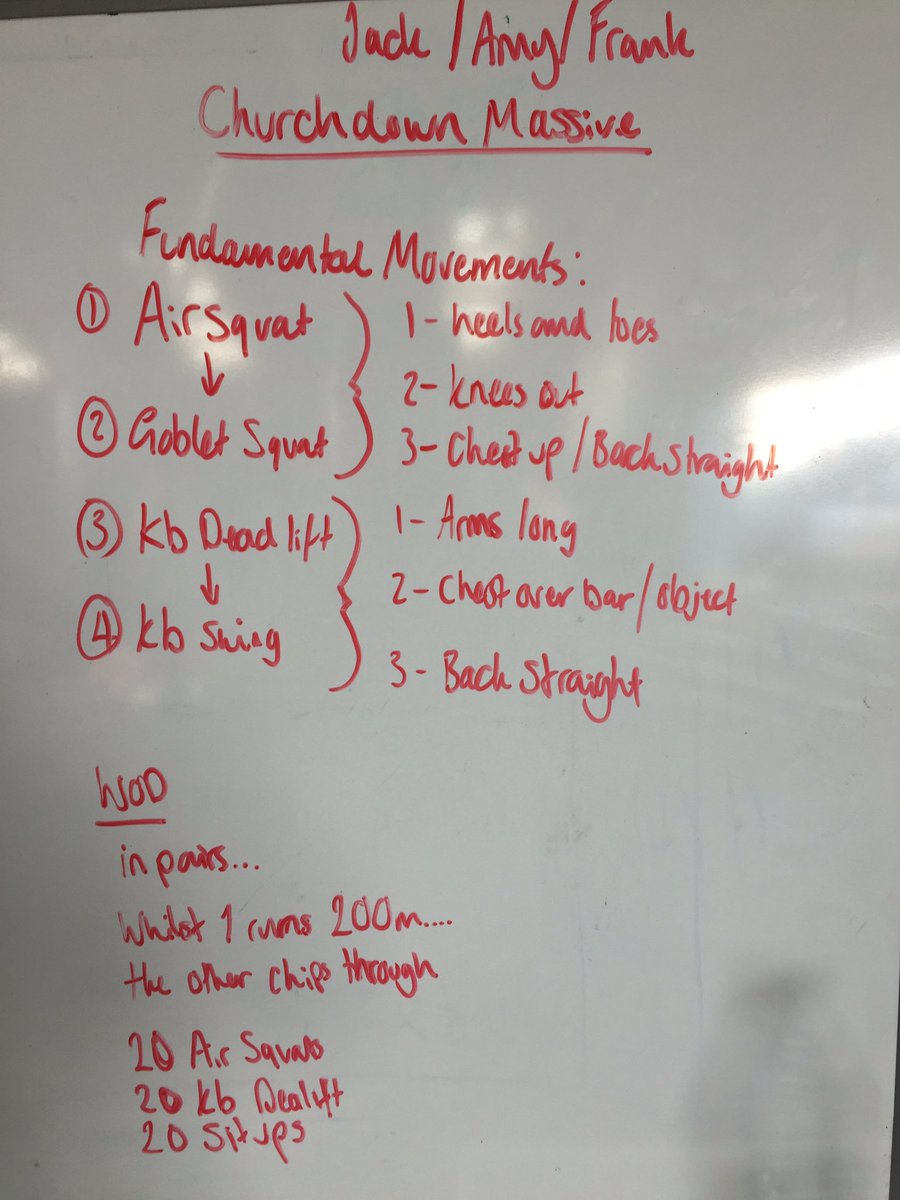 Jack / Amy / Frank
Churchdown Massive
Fundamental Movements:
① Air Squat
↓
② Goblet Squat
1- heels and toes
2- knees out
3- Chest up / Back straight
③ kb Deadlift
↓
④ kb Swing
1- Arms long
2- Chest over bar / object
3- Back Straight
WOD
in pairs...
Whilst 1 runs 200m....
the other chips through
20 Air Squats
20 kb Dealift
20 Sit ups